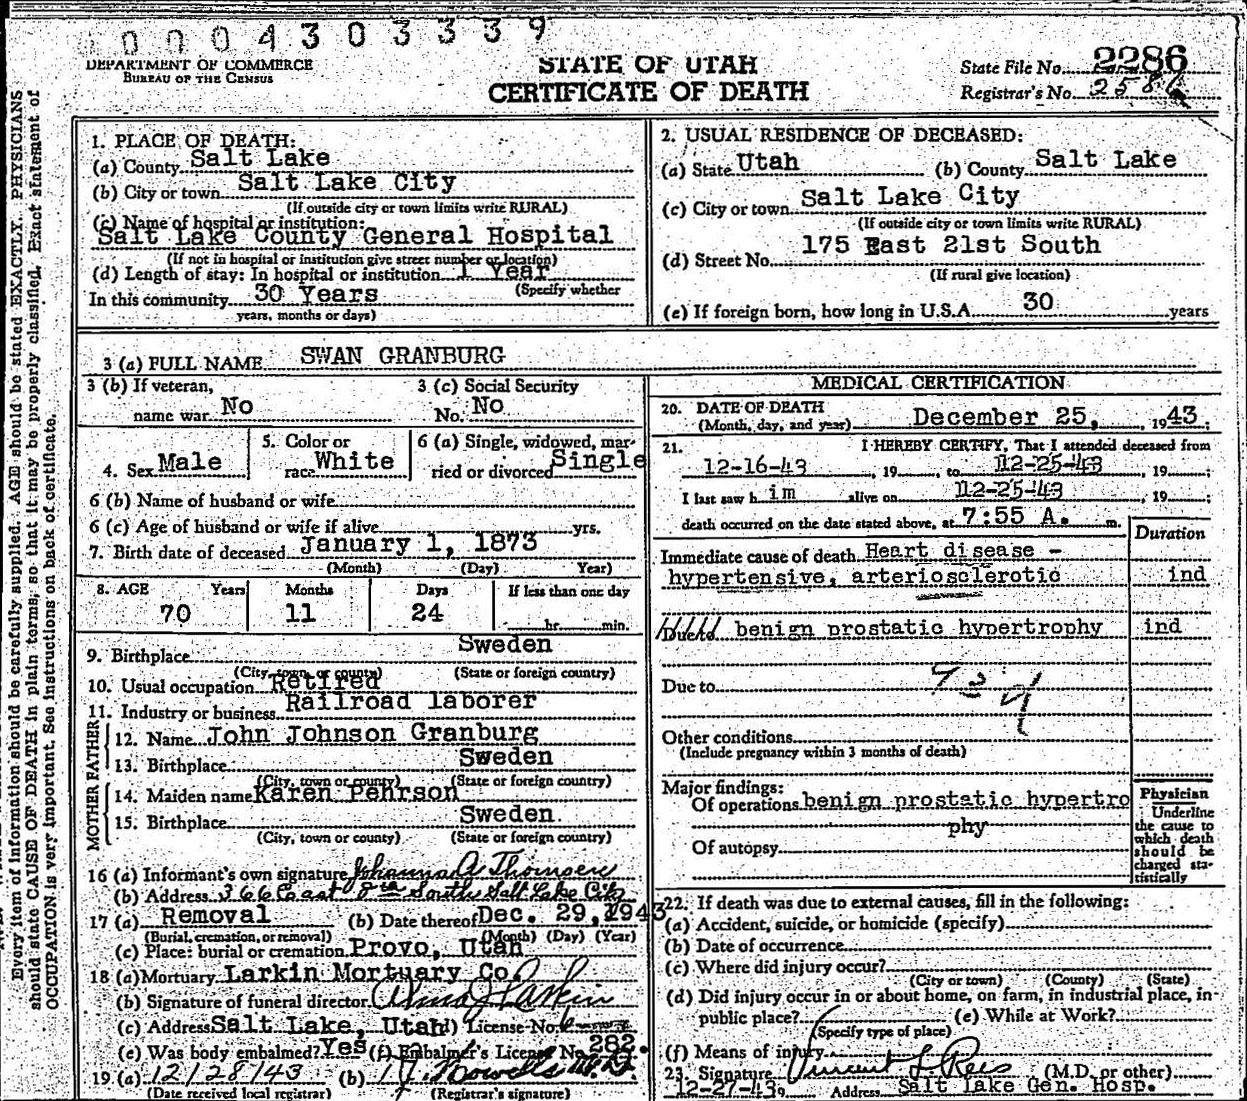 0004303339
DEPARTMENT OF COMMERCE
BUREAU OF THE CENSUS
STATE OF UTAH
CERTIFICATE OF DEATH
State File No. 2286
Registrar's No. 2586
Every item of information should be carefully supplied. AGE should be stated EXACTLY. PHYSICIANS
should state CAUSE OF DEATH in plain terms, so that it may be properly classified. Exact statement of
OCCUPATION is very important. See instructions on back of certificate.
1. PLACE OF DEATH:
(a) County Salt Lake
(b) City or town Salt Lake City
(If outside city or town limits write RURAL)
(c) Name of hospital or institution:
Salt Lake County General Hospital
(If not in hospital or institution give street number or location)
(d) Length of stay: In hospital or institution 1 Year
(Specify whether
In this community 30 Years
years, months or days)
2. USUAL RESIDENCE OF DECEASED:
(a) State Utah (b) County Salt Lake
(c) City or town Salt Lake City
(If outside city or town limits write RURAL)
(d) Street No. 175 East 21st South
(If rural give location)
(e) If foreign born, how long in U.S.A. 30 years
3 (a) FULL NAME SWAN GRANBURG
3 (b) If veteran,
name war No
3 (c) Social Security
No. No
4. Sex Male
5. Color or
race White
6 (a) Single, widowed, mar-
ried or divorced Single
6 (b) Name of husband or wife
6 (c) Age of husband or wife if alive yrs.
7. Birth date of deceased January 1, 1873
(Month) (Day) Year)
8. AGE Years Months Days If less than one day
70 11 24 hr. min.
9. Birthplace Sweden
(City, town, or county) (State or foreign country)
10. Usual occupation Retired
11. Industry or business Railroad laborer
FATHER
12. Name John Johnson Granburg
13. Birthplace Sweden
(City, town or county) (State or foreign country)
MOTHER
14. Maiden name Karen Pehrson
15. Birthplace Sweden.
(City, town or county) (State or foreign country)
16 (a) Informant's own signature Johanna A Thomsen
(b) Address 366 East 8th South Salt Lake City
17 (a) Removal (b) Date thereof Dec. 29, 1943
(Burial, cremation, or removal) (Month) (Day) (Year)
(c) Place: burial or cremation Provo, Utah
18 (a) Mortuary Larkin Mortuary Co.
(b) Signature of funeral director Larkin
(c) Address Salt Lake, Utah (d) License No.
(e) Was body embalmed? Yes (f) Embalmer's License No. 282.
19 (a) 12/28/43 (b) M.D.
(Date received local registrar) (Registrar's signature)
MEDICAL CERTIFICATION
20. DATE OF DEATH
(Month, day, and year) December 25, , 1943;
21. I HEREBY CERTIFY, That I attended deceased from
12-16-43 , 19 , to 12-25-43 , 19 ;
I last saw h im alive on 12-25-43 , 19 ;
death occurred on the date stated above, at 7:55 A. m.
Duration
Immediate cause of death Heart disease -
hypertensive, arteriosclerotic ind
Due to benign prostatic hypertrophy ind
Due to
Other conditions
(Include pregnancy within 3 months of death)
Major findings:
Of operations benign prostatic hypertro
phy
Of autopsy
Physician
Underline
the cause to
which death
should be
charged sta-
tistically
22. If death was due to external causes, fill in the following:
(a) Accident, suicide, or homicide (specify)
(b) Date of occurrence
(c) Where did injury occur?
(City or town) (County) (State)
(d) Did injury occur in or about home, on farm, in industrial place, in-
public place? (e) While at Work?
(Specify type of place)
(f) Means of injury
23. Signature Vincent L Rees (M.D. or other)
12-27-43 9 Address Salt Lake Gen. Hosp.